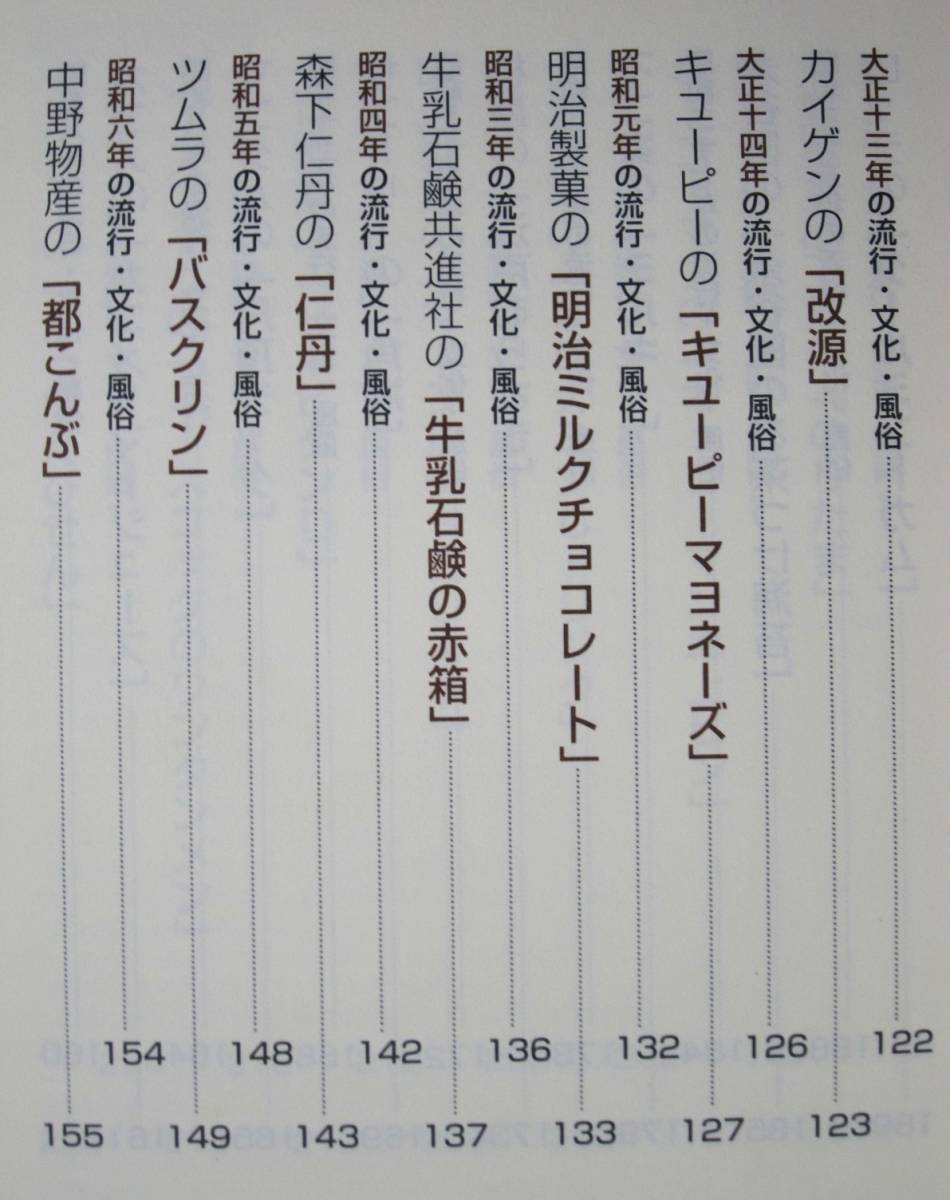 大正十三年の流行・文化・風俗 122
カイゲンの「改源」 123
大正十四年の流行・文化 風俗 126
キユーピーの「キユーピーマヨネーズ」 127
昭和元年の流行・文化・風俗 132
明治製菓の「明治ミルクチョコレート」 133
昭和三年の流行・文化・風俗 136
牛乳石鹸共進社の「牛乳石鹸の赤箱」 137
昭和四年の流行・文化・風俗 142
森下仁丹の「仁丹」 143
昭和五年の流行・文化・風俗 148
ツムラの「バスクリン」 149
昭和六年の流行・文化・風俗 154
中野物産の「都こんぶ」 155